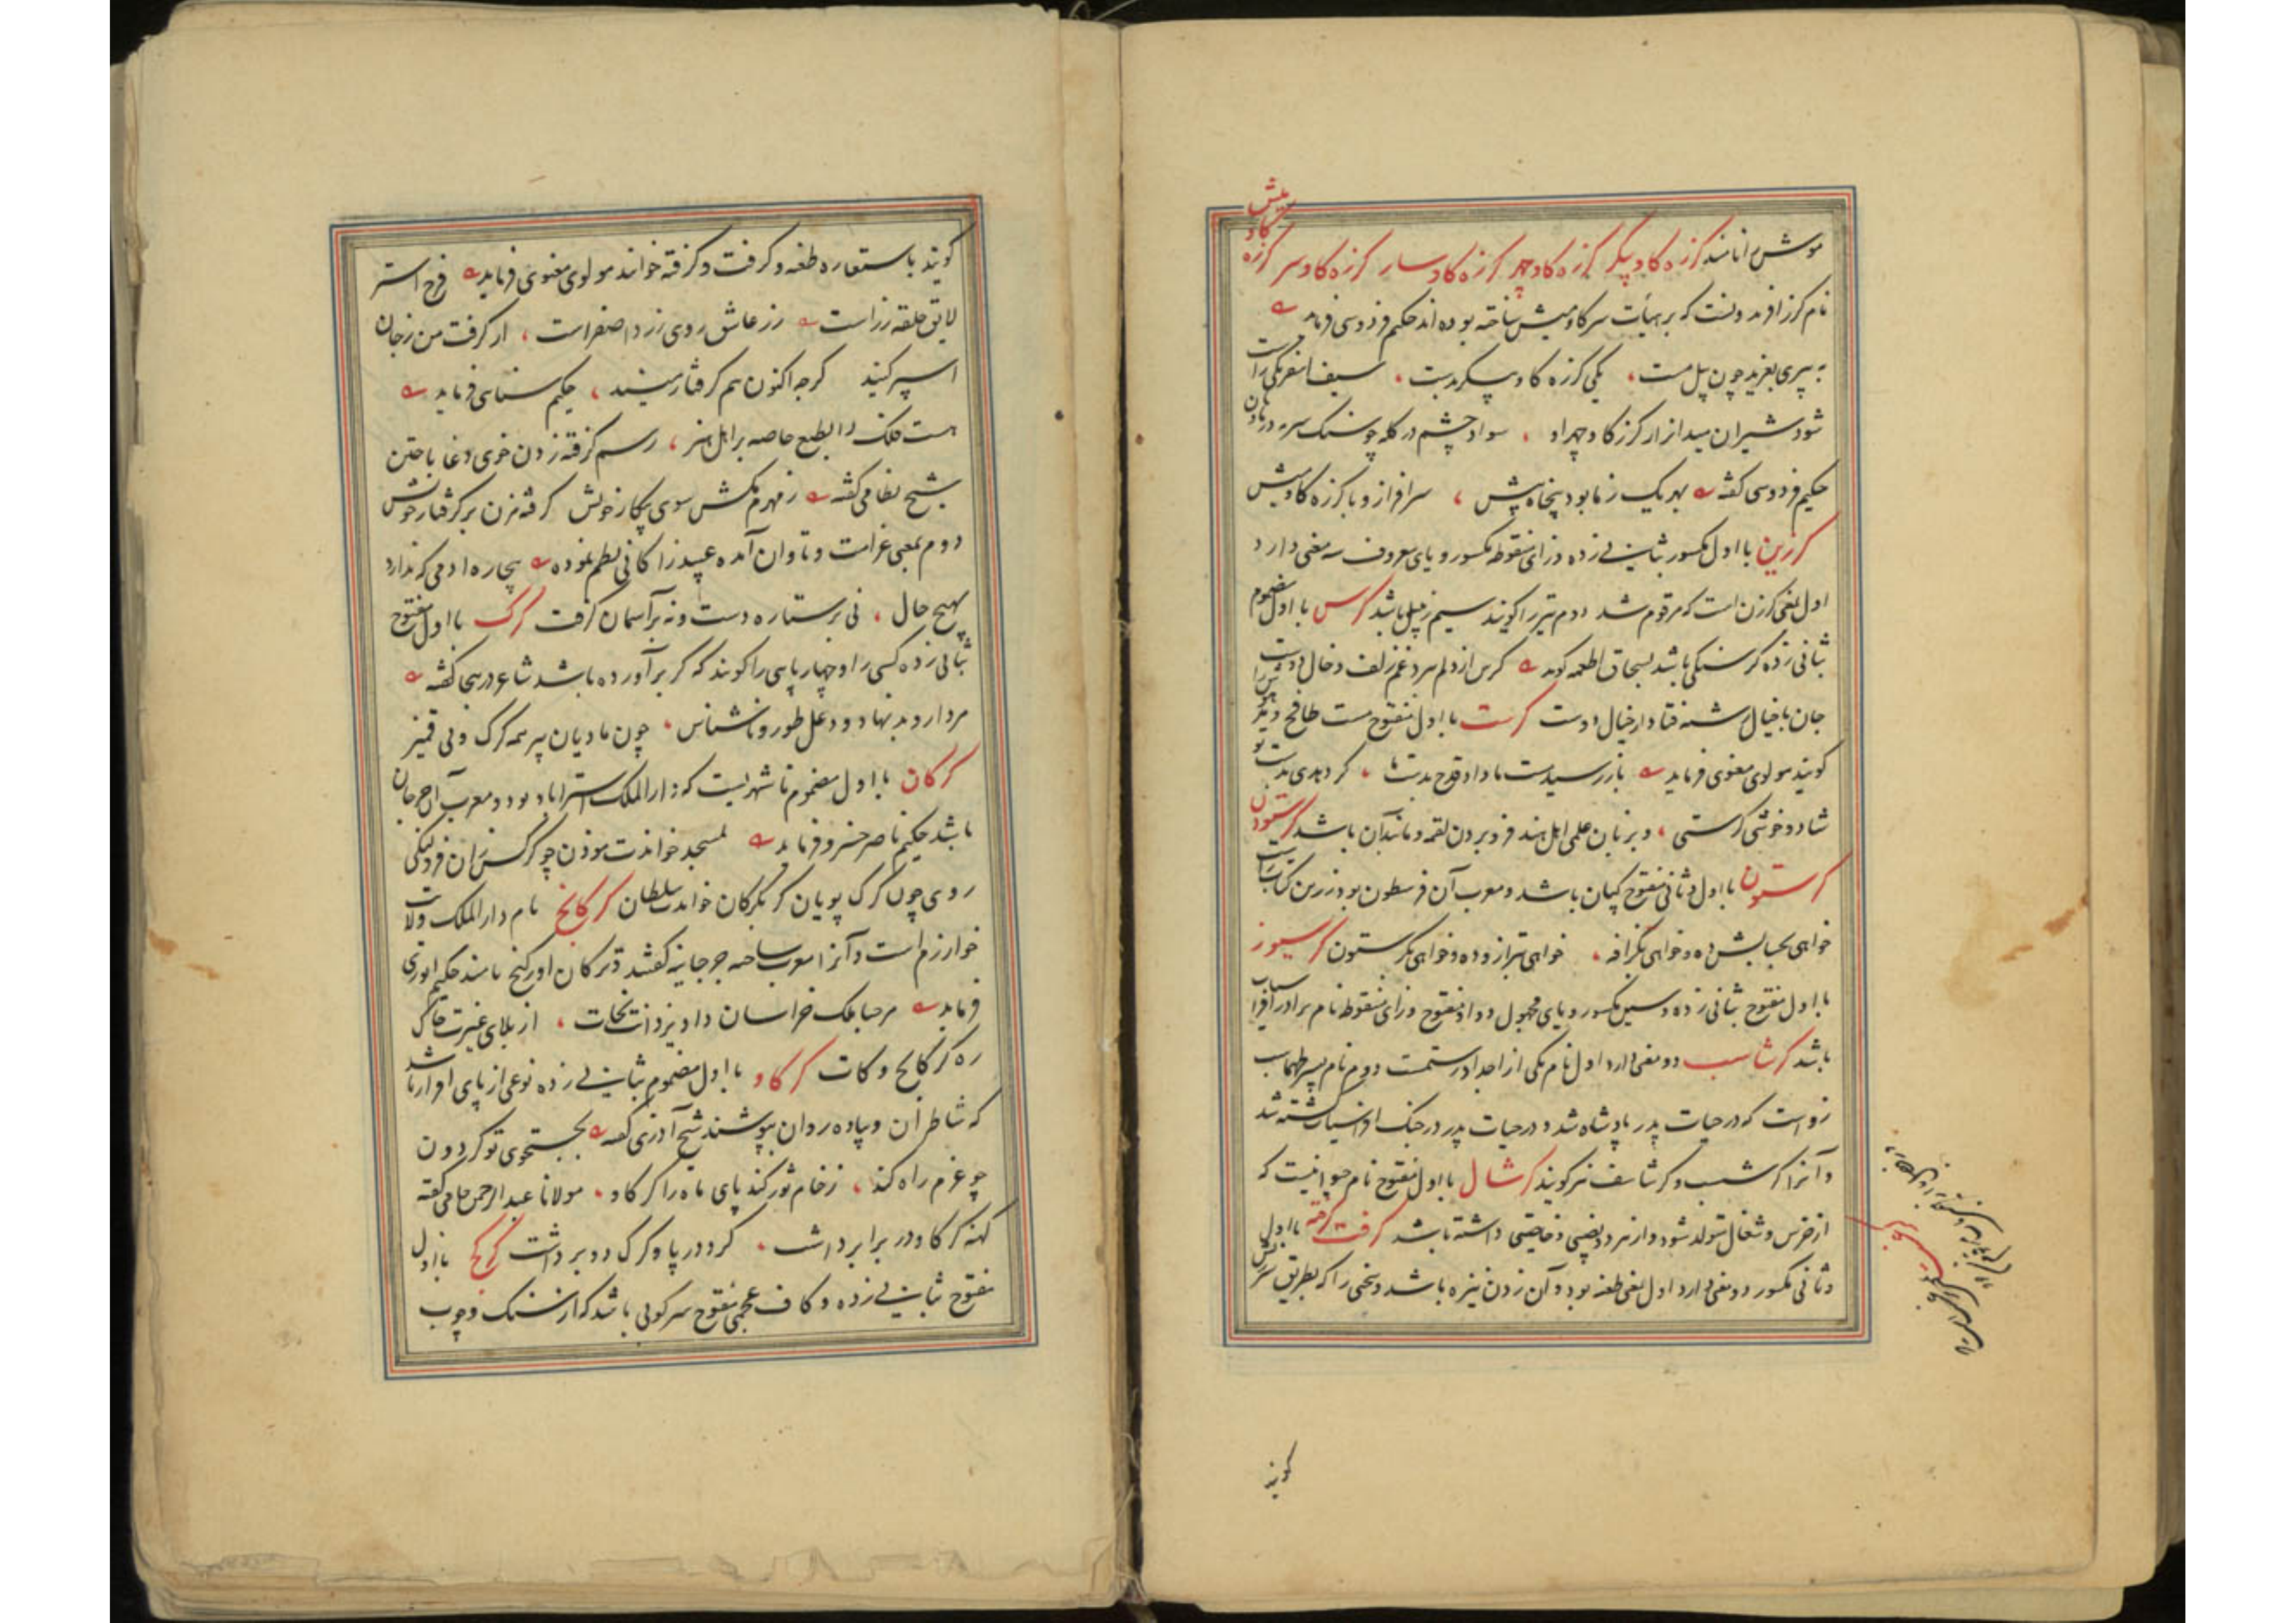 میش
کاو
موش را نامند کرزه کاو پیکر کرزه کاو چهر کرزه کاو سار کرزه کاو سر کرزه
نام کرز افریدونست که بر هیأت سر کاومیش ساخته بوده اند حکیم فردوسی فرماید
به پیری بغرید چون پیل مست یکی کرزه کاو پیکر بدست سیف اسفرنکی راست
شود شیران میدانرا از کرز کاو چهر او سواد چشم در کله چو سنک سرمه در هاون
حکیم فردوسی کفته بهر یک ز ما بود پنجاه بیش سرافراز و با کرزه کاومیش
کرزین با اول مکسور بثانی زده و زای منقوطه مکسور و یای معروف سه معنی دارد
اول بمعنی کرزن است که مرقوم شد دوم تیر را کویند سیم زنبیل باشد کرس با اول مضموم
ثانی زده کرسنکی باشد بسحاق اطعمه کوید کرس از دلم سرد غم زلف و خال دوست
جان با خیال رشته فتاد از خیال اوست کرست با اول مفتوح مست طافح
کویند مولوی معنوی فرماید باز رسید مست ما داد قدح بدست ما کر دهدی بدست تو
شاد و خوشی کرستی و بزبان علمی اهل هند فرو بردن لقمه و مانند آن باشد کرستون
کرستون با اول و ثانی مفتوح کپان باشد و معرب آن قرسطون بود زرین کتاب راست
خواهی بحسابش ده و خواهی بکزافه خواهی بترازو ده و خواهی بکرستون کرسیوز
با اول مفتوح بثانی زده و سین مکسور و یای مجهول و واو مفتوح و زای منقوطه نام برادر افراسیاب
باشد کرشاسب دو معنی دارد اول نام یکی از اجداد رستمست دوم نام پسر طهماسب
زو است که در حیات پدر پادشاه شد و در حیات پدر در جنک افراسیاب کشته شد
و آنرا کرشسب و کرشاسف نیز کویند کرشال با اول مفتوح نام حیوانیست که
از خرس و شغال متولد شود و از هر دو نصیبی و خاصیتی داشته باشد کرفت کرفته با اول
و ثانی مکسور دو معنی دارد اول بمعنی طعنه بود و آن زدن نیزه باشد و سخنی را که بطریق سرزنش
کویند
کویند باستعاره طعنه و کرفت و کرفته خوانند مولوی معنوی فرماید فرج استر
لایق حلقه زر است زر عاشق روی زرد اصفر است ار کرفت من ز جان
اسیر کنید کرچه اکنون هم کرفتار منید حکیم سنائی فرماید
هست فلک را بطبع خاصه بر اهل هنر رسم کرفته زدن خوی دغا باختن
شیخ نظامی کفته ز مهرم مکش سوی پیکار خویش کرفته مزن بر کرفتار خویش
دوم بمعنی غرامت و تاوان آمده عبید زاکانی نظم نموده بیچاره ادمی که ندارد
بهیچ حال نی بر ستاره دست و نه بر آسمان کرفت کرک با اول مفتوح
بثانی زده کسی را و چهارپایی را کویند که کر برآورده باشد شاعر در هجا کفته
مردار و بد نهاد و دغل طور و ناشناس چون مادیان پیر همه کرک و بی قمیز
کرکان با اول مضموم نام شهریست که دارالملک استراباد بود و معرب آن جرجان
باشد حکیم ناصر خسرو فرماید بمسجد خواندت موذن چو کرکس زان فرو لنکی
روی چون کرک پویان کر بکرکان خواندت سلطان کرکانج نام دارالملک ولایت
خوارزم است و آنرا معرب ساخته جرجانیه کفتند و ترکان اورکنج نامند حکیم انوری
فرماید مرحبا بملک خراسان داد یزدانت نجات از بلای غیرت خاک
ره کرکانج و کات کرکاو با اول مضموم بثانی زده نوعی از پای افزار باشد
که شاطران و پیاده روان بپوشند شیخ آذری کفته بجستجوی تو کردون
چو عزم راه کند ز خام ثور کند پای ماه را کرکاو مولانا عبدالرحمن جامی کفته
کهنه کرکاو در برابر داشت کرد در پا و کرک دو بر داشت کرکج با اول
مفتوح بثانی زده و کاف عجمی مفتوح سرکوبی باشد که از سنک و چوب